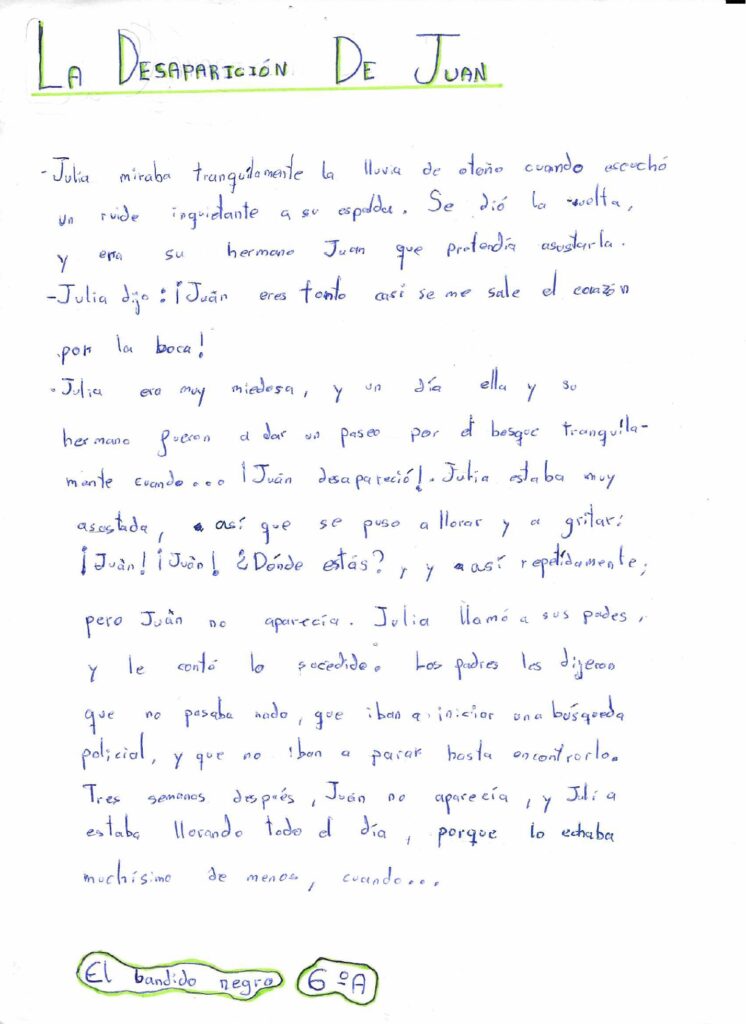 LA DESAPARICIÓN DE JUAN
-Julia miraba tranquilamente la lluvia de otoño cuando escuchó
un ruido inquietante a su espalda. Se dió la vuelta,
y era su hermano Juan que pretendía asustarla.
-Julia dijo: ¡Juán eres tonto casi se me sale el corazón
por la boca!
-Julia era muy miedosa, y un día ella y su
hermano fueron a dar un paseo por el bosque tranquila-
mente cuando... ¡Juán desapareció!. Julia estaba muy
asustada, así que se puso a llorar y a gritar:
¡Juán! ¡Juán! ¿Dónde estás?, y así repetidamente,
pero Juán no aparecía. Julia llamó a sus pades,
y le contó lo sucedido. Los padres les dijeron
que no pasaba nada, que iban a iniciar una búsqueda
policial, y que no iban a parar hasta encontrarlo.
Tres semanas después, Juán no aparecía, y Julia
estaba llorando todo el día, porque lo echaba
muchísimo de menos, cuando...
El bandido negro 6ºA